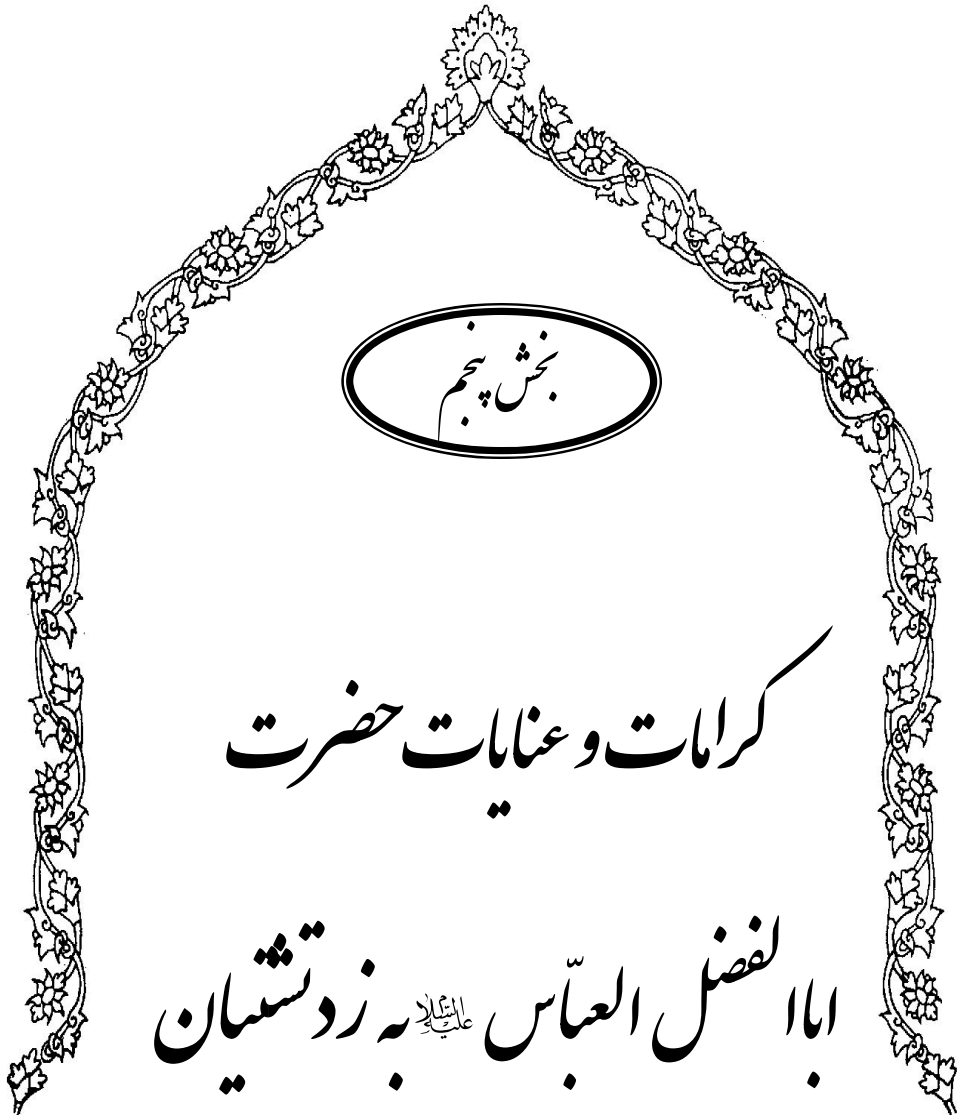 بخش پنجم
کرامات و عنایات حضرت
اباالفضل العبّاس علیه‌السلام به زردتشتیان